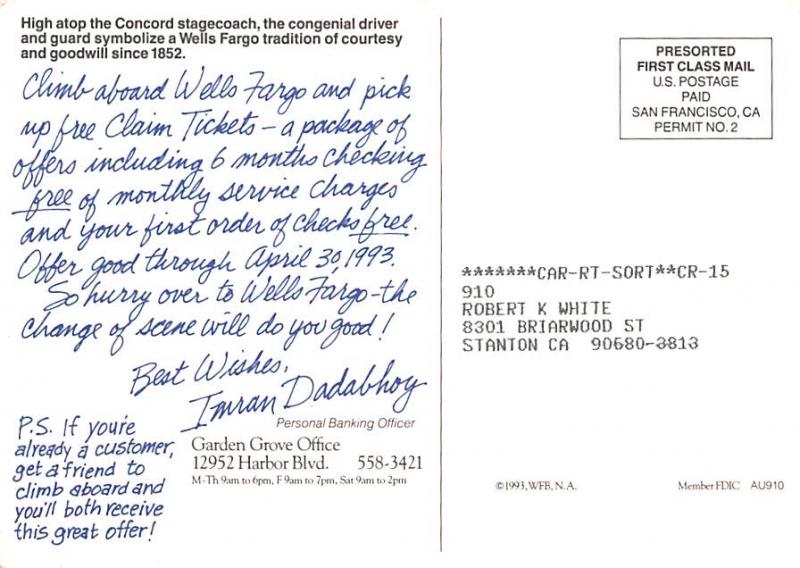 High atop the Concord stagecoach, the congenial driver
and guard symbolize a Wells Fargo tradition of courtesy
and goodwill since 1852.
Climb aboard Wells Fargo and pick
up free Claim Tickets – a package of
offers including 6 months checking
free of monthly service charges
and your first order of checks free.
Offer good through April 30, 1993.
So hurry over to Wells Fargo – the
change of scene will do you good!
Best Wishes,
Imran Dadabhoy
Personal Banking Officer
Garden Grove Office
12952 Harbor Blvd. 558-3421
M-Th 9am to 6pm, F 9am to 7pm, Sat 9am to 2pm
P.S. If you're
already a customer,
get a friend to
climb aboard and
you'll both receive
this great offer!
PRESORTED
FIRST CLASS MAIL
U.S. POSTAGE
PAID
SAN FRANCISCO, CA
PERMIT NO. 2
*******CAR-RT-SORT**CR-15
910
ROBERT K WHITE
8301 BRIARWOOD ST
STANTON CA 90680-3813
©1993, WFB, N.A.
Member FDIC AU910